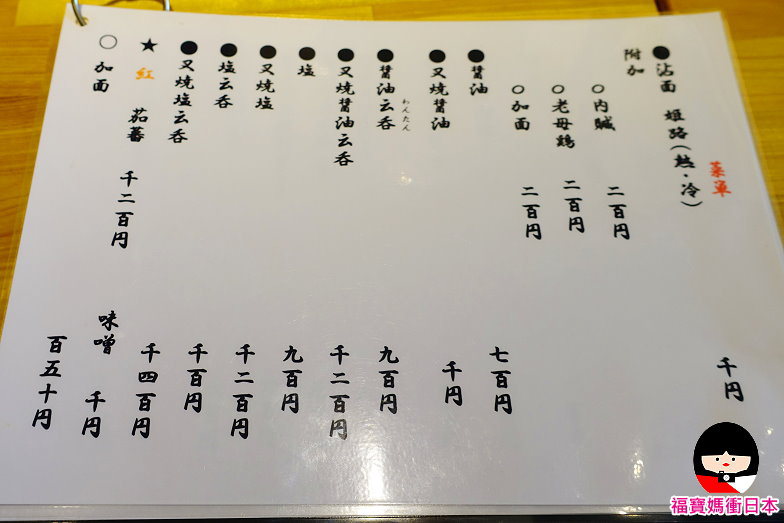 菜單
●沾面 姫路(熱・冷) 千円
附加
○内臓 二百円
○老母鶏 二百円
○加面 二百円
●醤油 七百円
●叉焼醤油 千円
●醤油云呑 九百円
わんたん
●叉焼醤油云呑 千二百円
●塩 九百円
●叉焼塩 千二百円
●塩云呑 千百円
●叉焼塩云呑 千四百円
★紅 茄蕃 千二百円 味噌 千円
○加面 百五十円
福寶媽衝日本